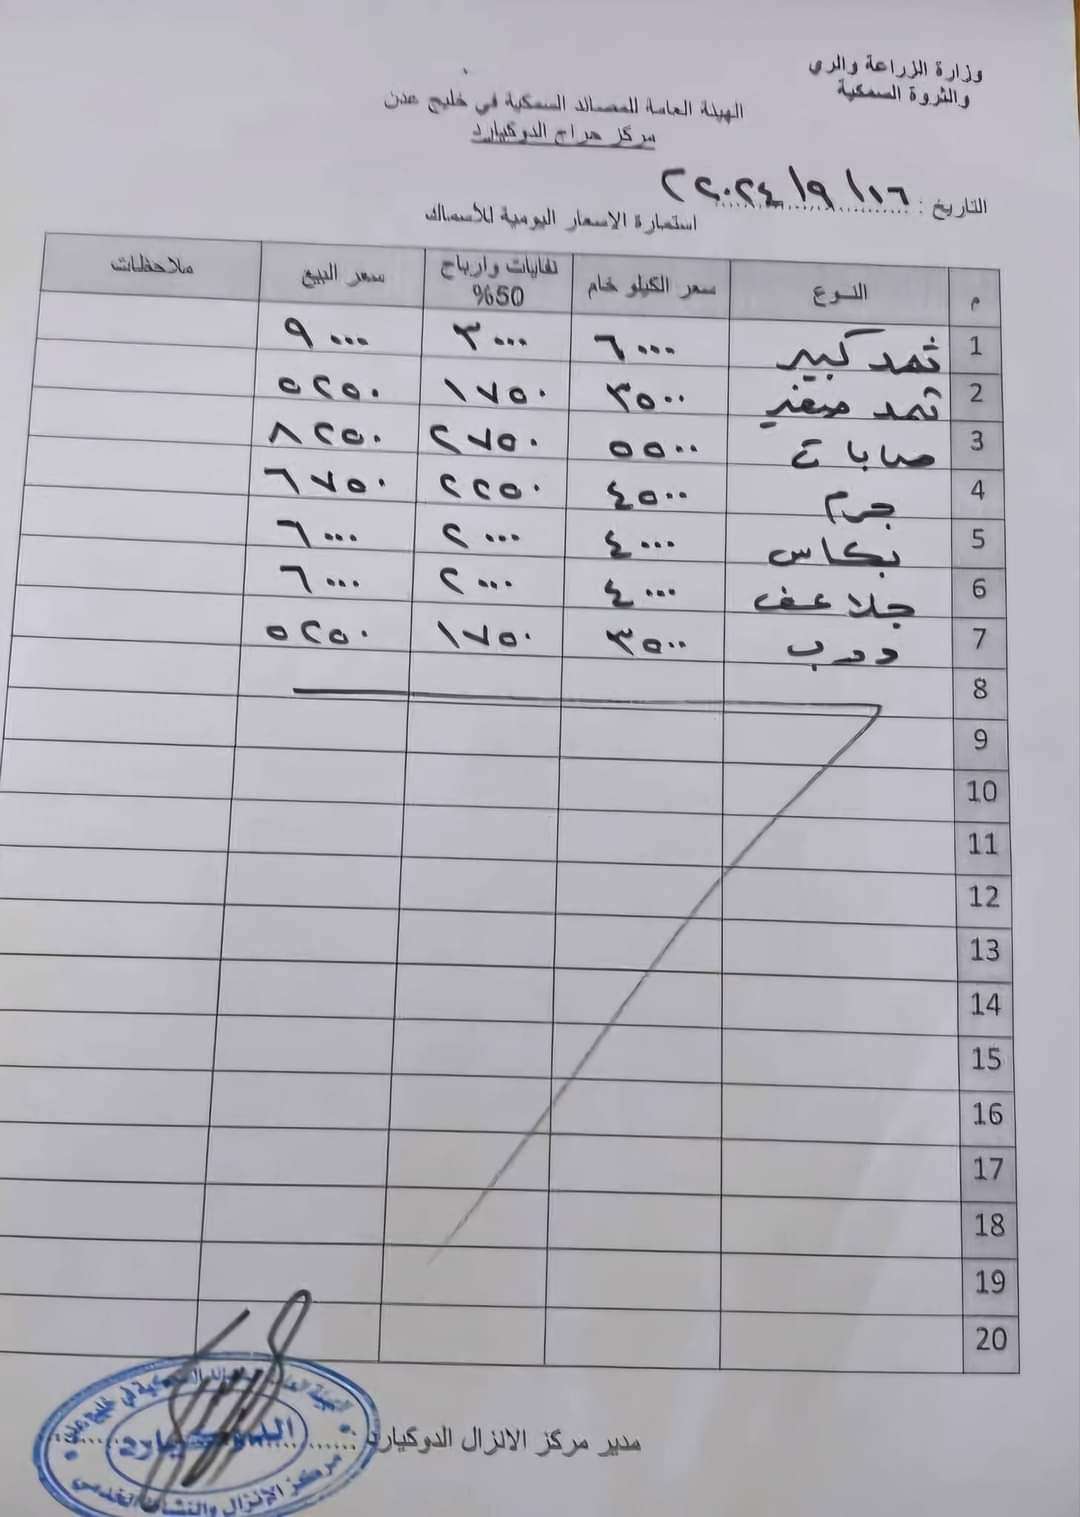 وزارة الزراعة والري
والثروة السمكية
الهيئة العامة للمصائد السمكية في خليج عدن
مركز حراج الدوكيارد
التاريخ : ١٦/٩/٢٠٢٤
استمارة الاسعار اليومية للأسماك
م النوع سعر الكيلو خام نفايات وارباح 50% سعر البيع ملاحظات
1 ثمد كبير ٦٠٠٠ ٣٠٠٠ ٩٠٠٠
2 ثمد صغير ٣٥٠٠ ١٧٥٠ ٥٢٥٠
3 ٥٥٠٠ ٢٧٥٠ ٨٢٥٠
4 جرم ٤٥٠٠ ٢٢٥٠ ٦٧٥٠
5 بكاس ٤٠٠٠ ٢٠٠٠ ٦٠٠٠
6 جلاعف ٤٠٠٠ ٢٠٠٠ ٦٠٠٠
7 درب ٣٥٠٠ ١٧٥٠ ٥٢٥٠
8
9
10
11
12
13
14
15
16
17
18
19
20
مدير مركز الانزال الدوكيارد
الهيئة العامة للمصائد السمكية في خليج عدن
الدوكيارد
مركز الإنزال والنشاط الخدمي